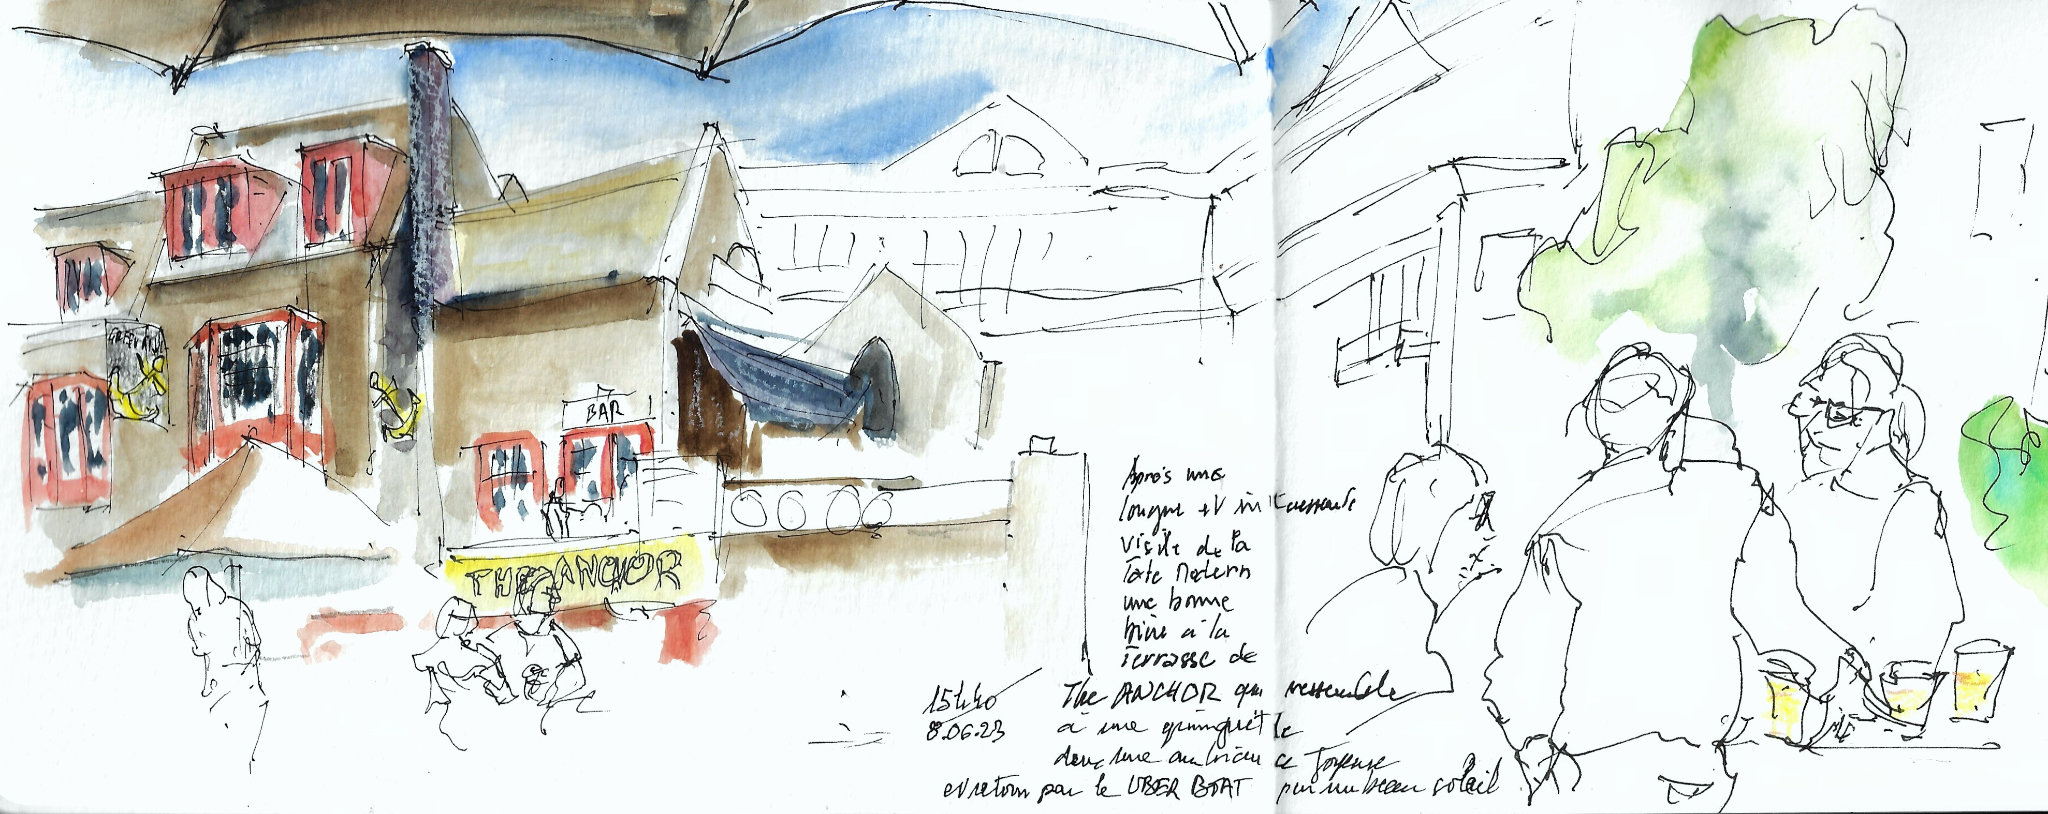 BAR
THE ANCHOR
Après une
longue et intéressante
visite de la
Tate Modern
une bonne
bière à la
Terrasse de
The ANCHOR qui ressemble
à une guinguette
dans une ambiance Joyeuse
et retour par le UBER BOAT par un beau soleil
15h40
8.06.23